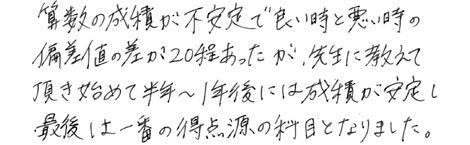 算数の成績が不安定で良い時と悪い時の
偏差値の差が20程あったが、先生に教えて
頂き始めて半年～1年後には成績が安定し
最後は一番の得点源の科目となりました。